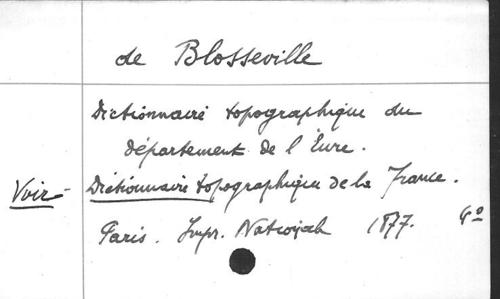 de Blosseville
Dictionnaire topographique du
département de l'Eure.
Voir - Dictionnaire topographique de la France.
Paris. Impr. Nationale 1877. 4º